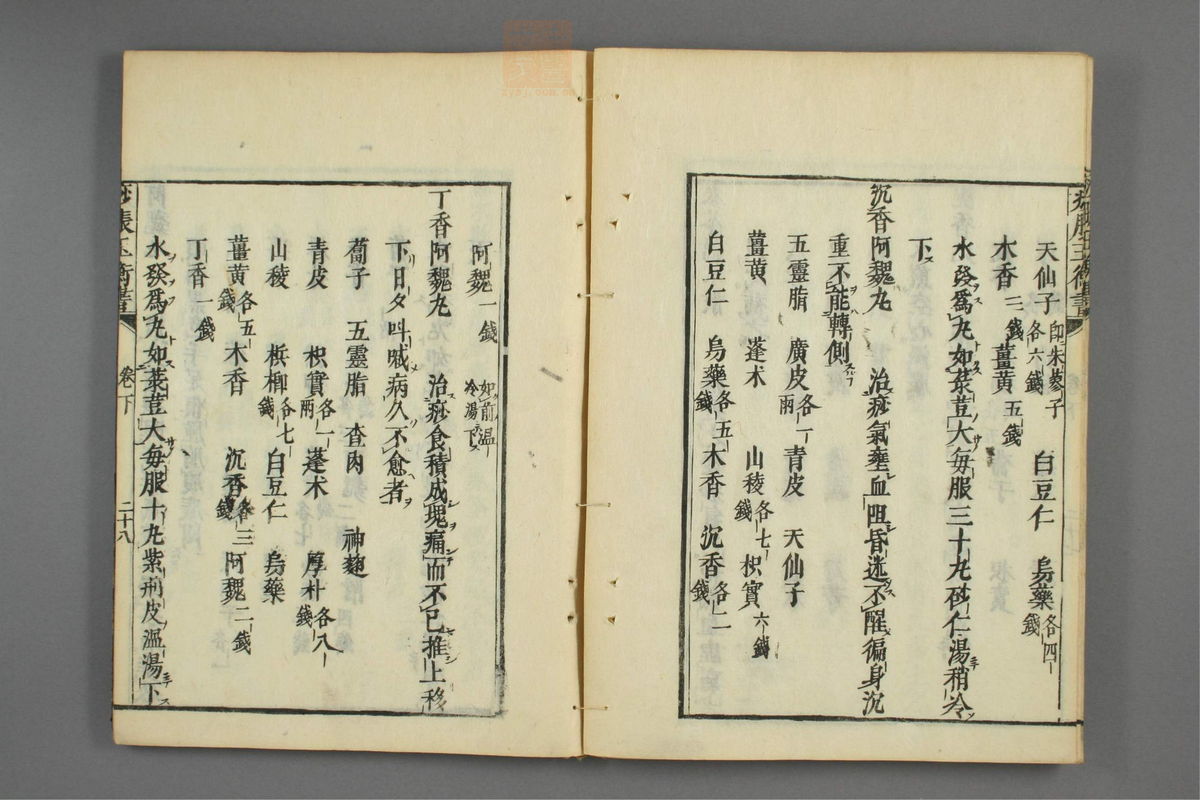 天仙子 即朱蓼子各六錢 白豆仁 烏藥 各四錢
木香 三錢 薑黃 五錢
水發爲丸如萊荳大每服三十丸砂仁湯稍冷
下
沉香阿魏丸 治痧氣壅血阻昏迷不醒徧身沉
重不能轉側
五靈脂 廣皮 各一兩 青皮 天仙子
薑黃 蓬术 山稜 各七錢 枳實 六錢
白豆仁 烏藥 各五錢 木香 沉香 各二錢
阿魏 一錢 如前溫冷湯下
丁香阿魏丸 治痧食積成塊痛而不已推上移
下日夕呌喊病久不愈者
蔔子 五靈脂 查肉 神麯
青皮 枳實 各一兩 蓬术 厚朴 各八錢
山稜 梹榔 各七錢 白豆仁 烏藥
薑黃 各五錢 木香 沉香 各三錢 阿魏 二錢
丁香 一錢
水發爲丸如萊荳大每服十丸紫荊皮溫湯下
痧脹玉衡書 卷下 二十八